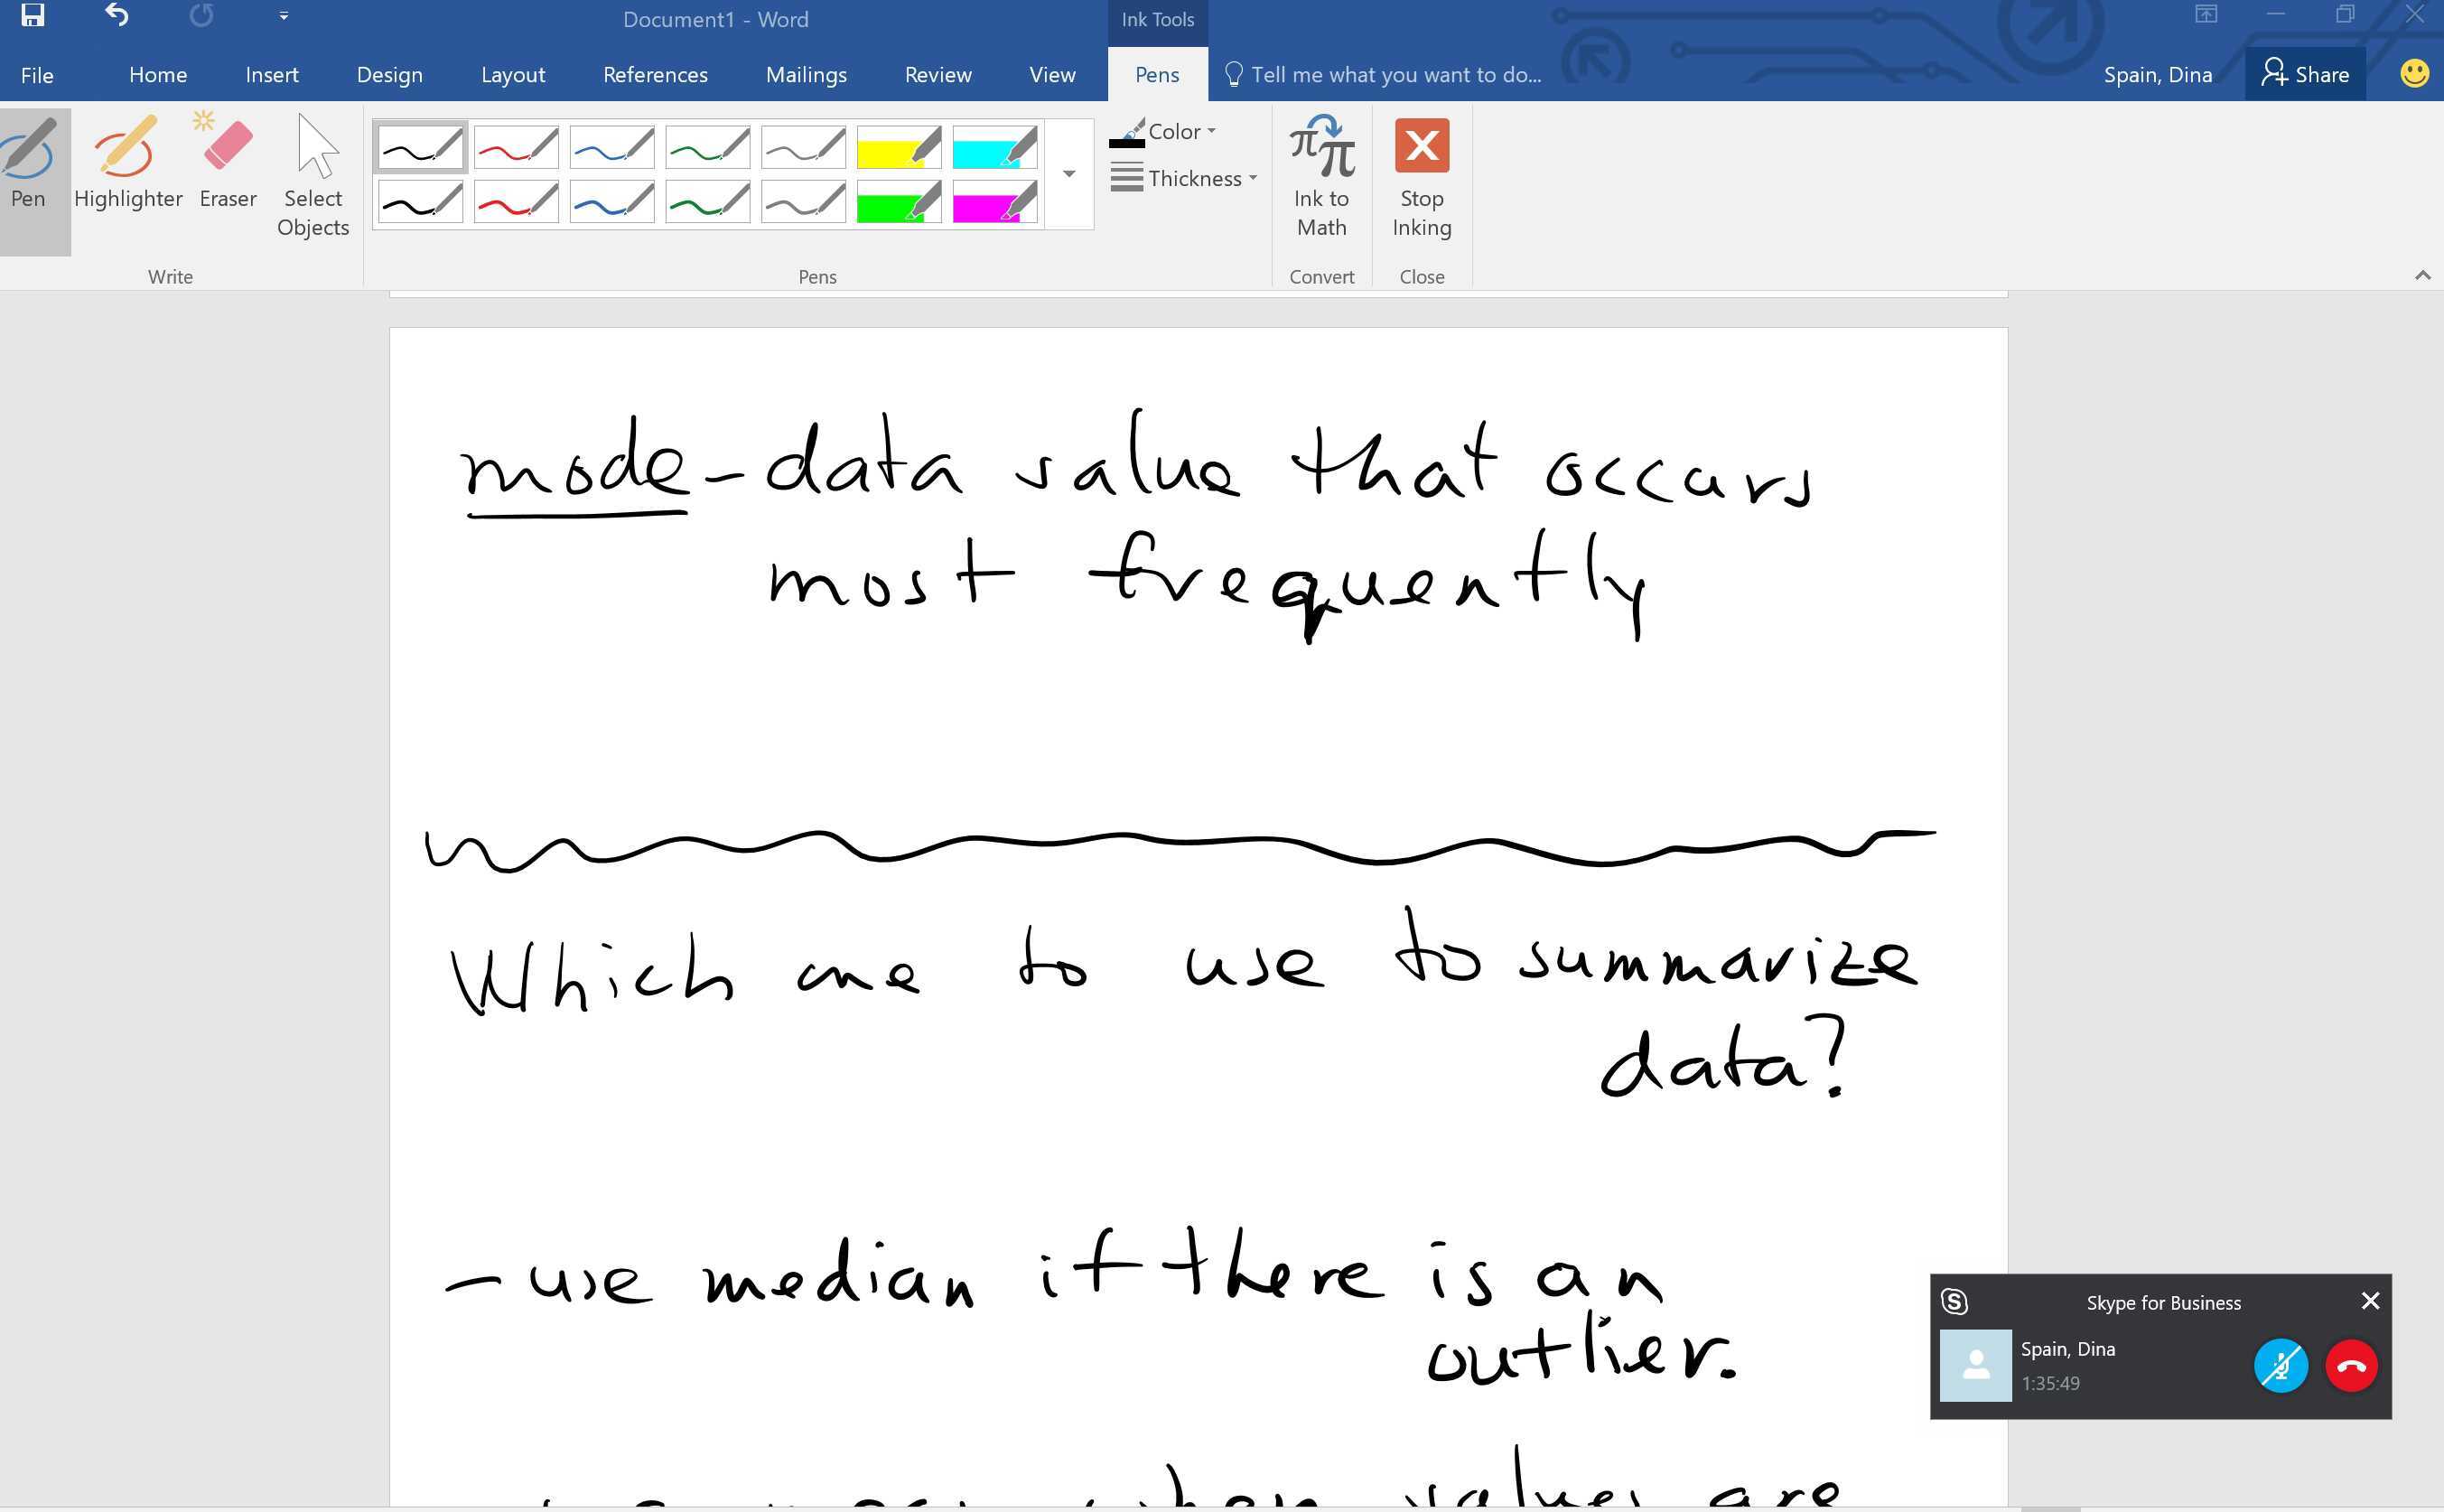 Document1 - Word
Ink Tools
File Home Insert Design Layout References Mailings Review View Pens Tell me what you want to do... Spain, Dina Share
Pen Highlighter Eraser Select Objects
Color
Thickness
Ink to Math
Stop Inking
Write Pens Convert Close
mode - data value that occurs
most frequently
Which one to use to summarize
data?
- use median if there is an
outlier.
when values are
Skype for Business
Spain, Dina
1:35:49